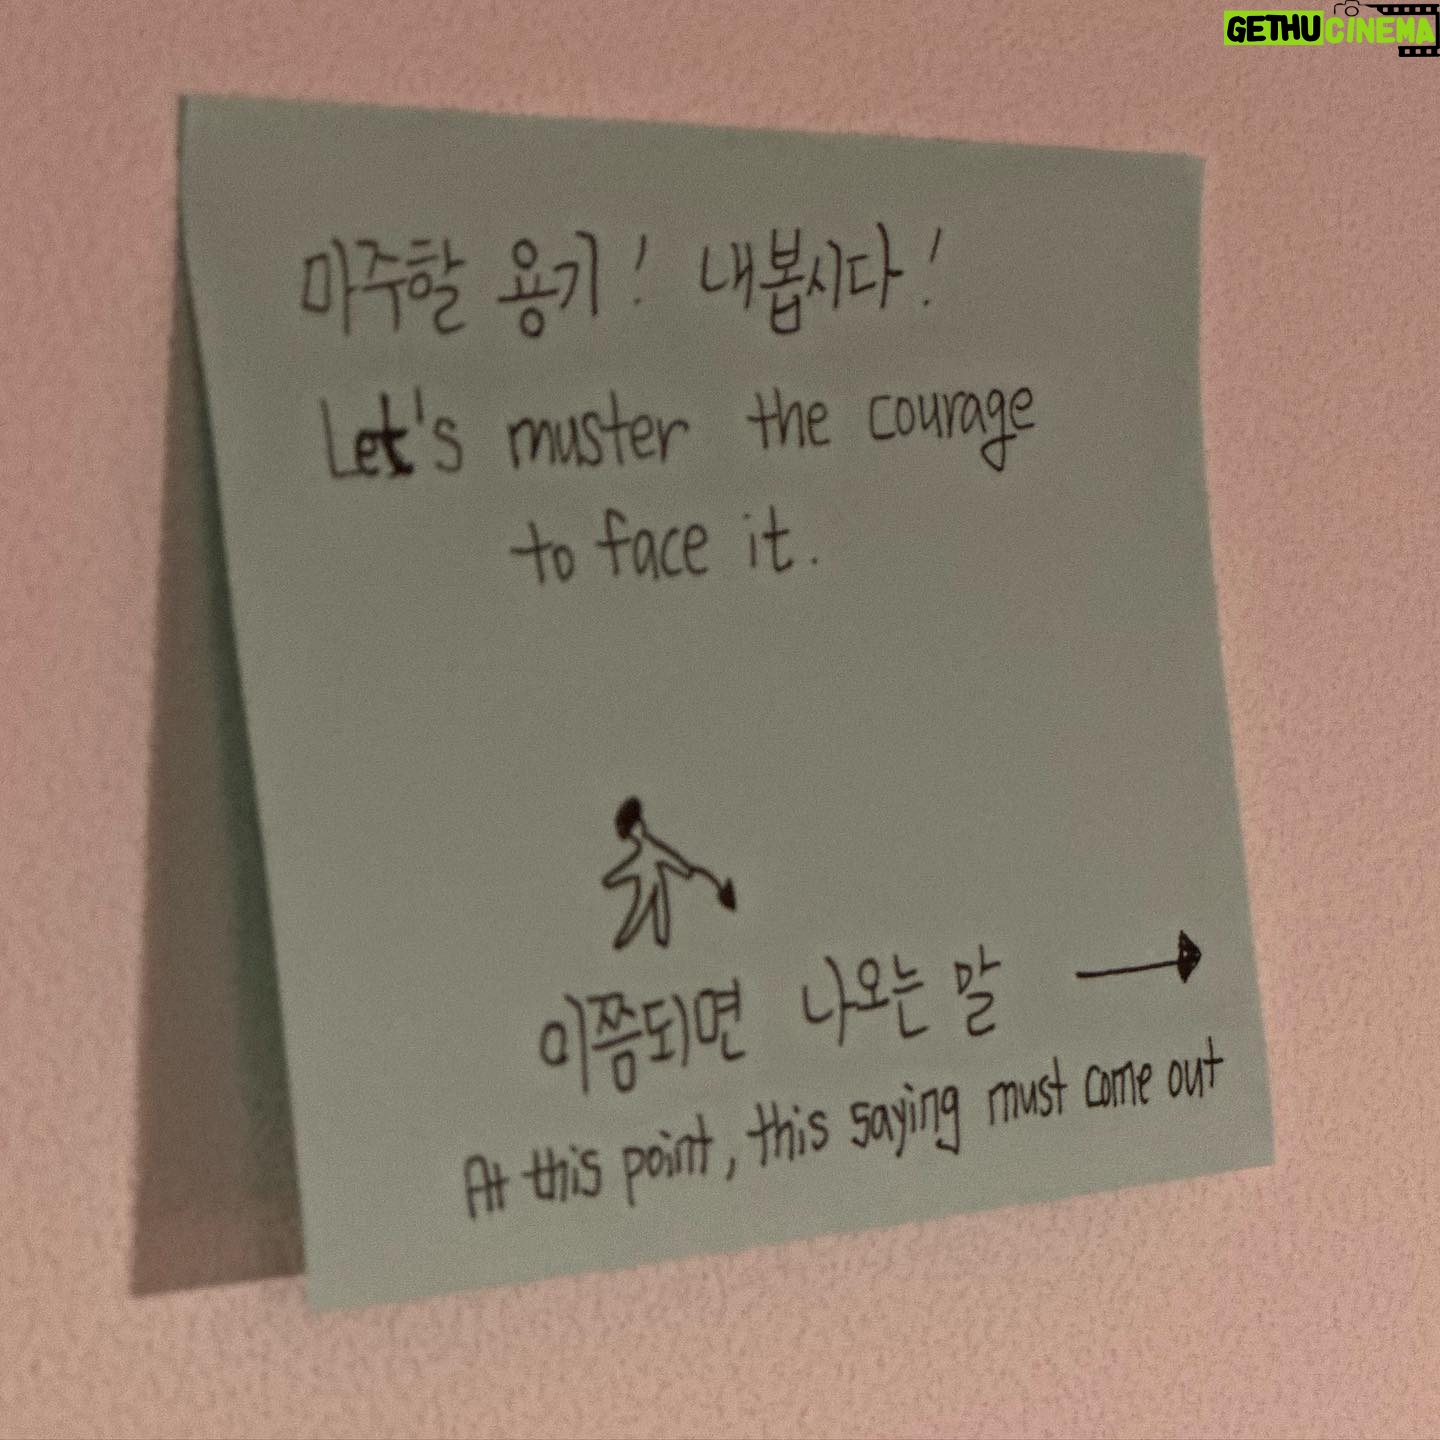 GETHUCINEMA
마주할 용기! 내봅시다!
Let's muster the courage
to face it.
이쯤되면 나오는 말 →
At this point, this saying must come out